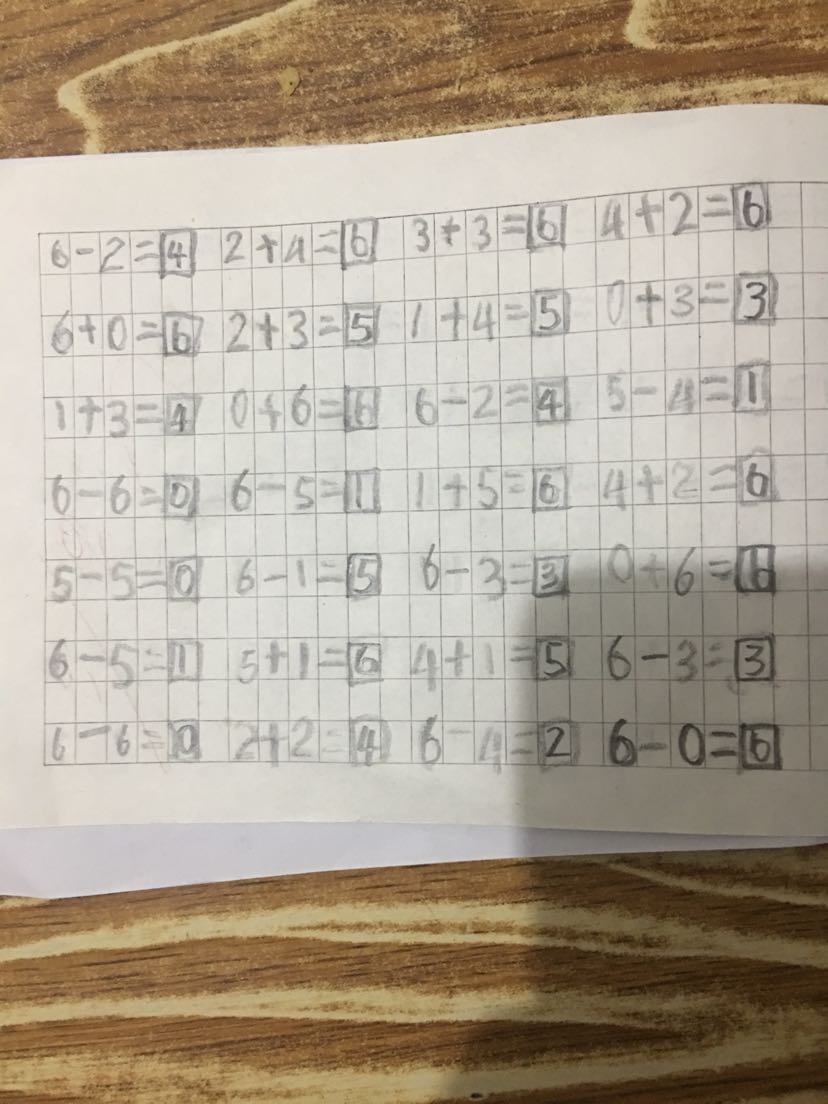 6-2=4 2+4=6 3+3=6 4+2=6
6+0=6 2+3=5 1+4=5 0+3=3
1+3=4 0+6=6 6-2=4 5-4=1
6-6=0 6-5=1 1+5=6 4+2=6
5-5=0 6-1=5 6-3=3 0+6=6
6-5=1 5+1=6 4+1=5 6-3=3
6-6=0 2+2=4 6-4=2 6-0=6